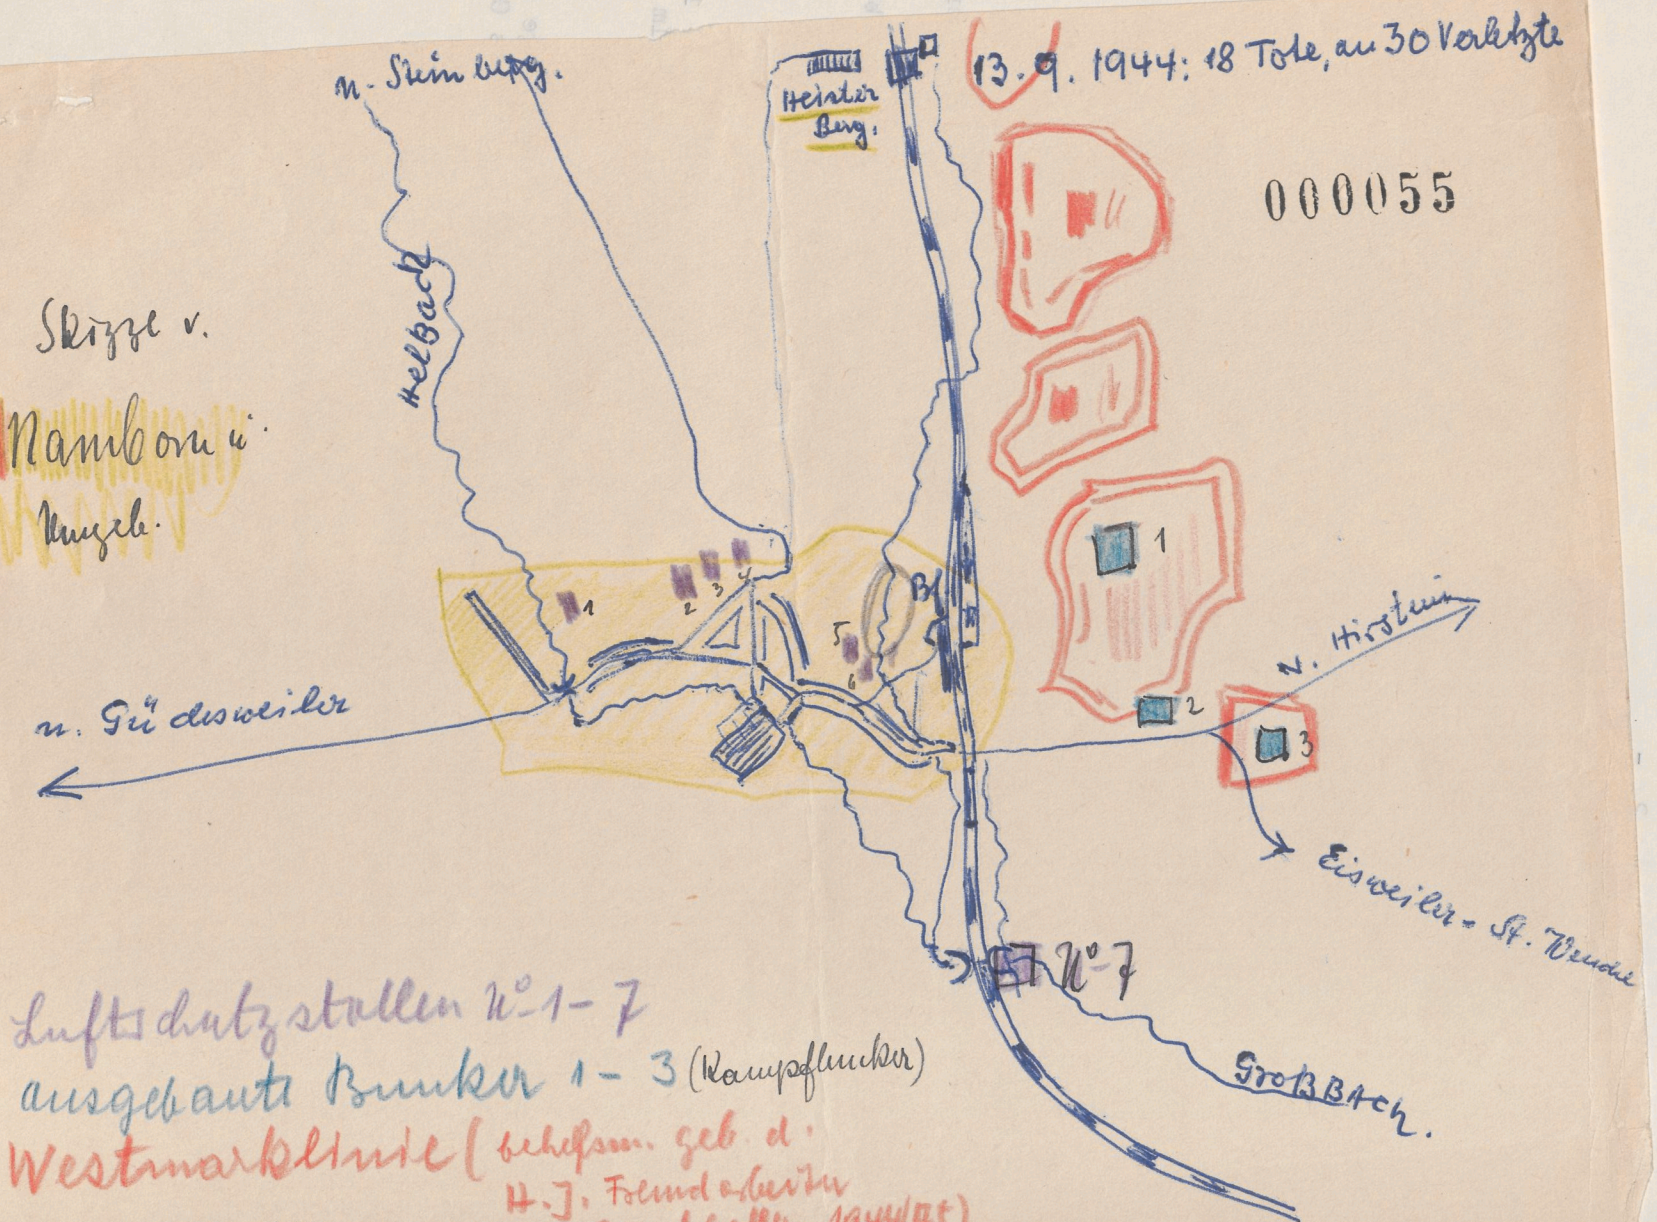 n. Steinberg.
Heister
Berg.
13. 9. 1944: 18 Tote, an 30 Verletzte
000055
Helbach
Skizze v.
Namborn u.
Umgeb.
1
2
3
4
5
6
Bf
1
n. Hirstein
2
3
n. Güdesweiler
Eisweiler - St. Wendel
No 7
GroßBach.
Luftschutzstollen No 1 - 7
ausgebaute Bunker 1 - 3 (Kampfbunker)
Westmarklinie ( behelfsm. geb. d.
H.J. Fremdarbeiter